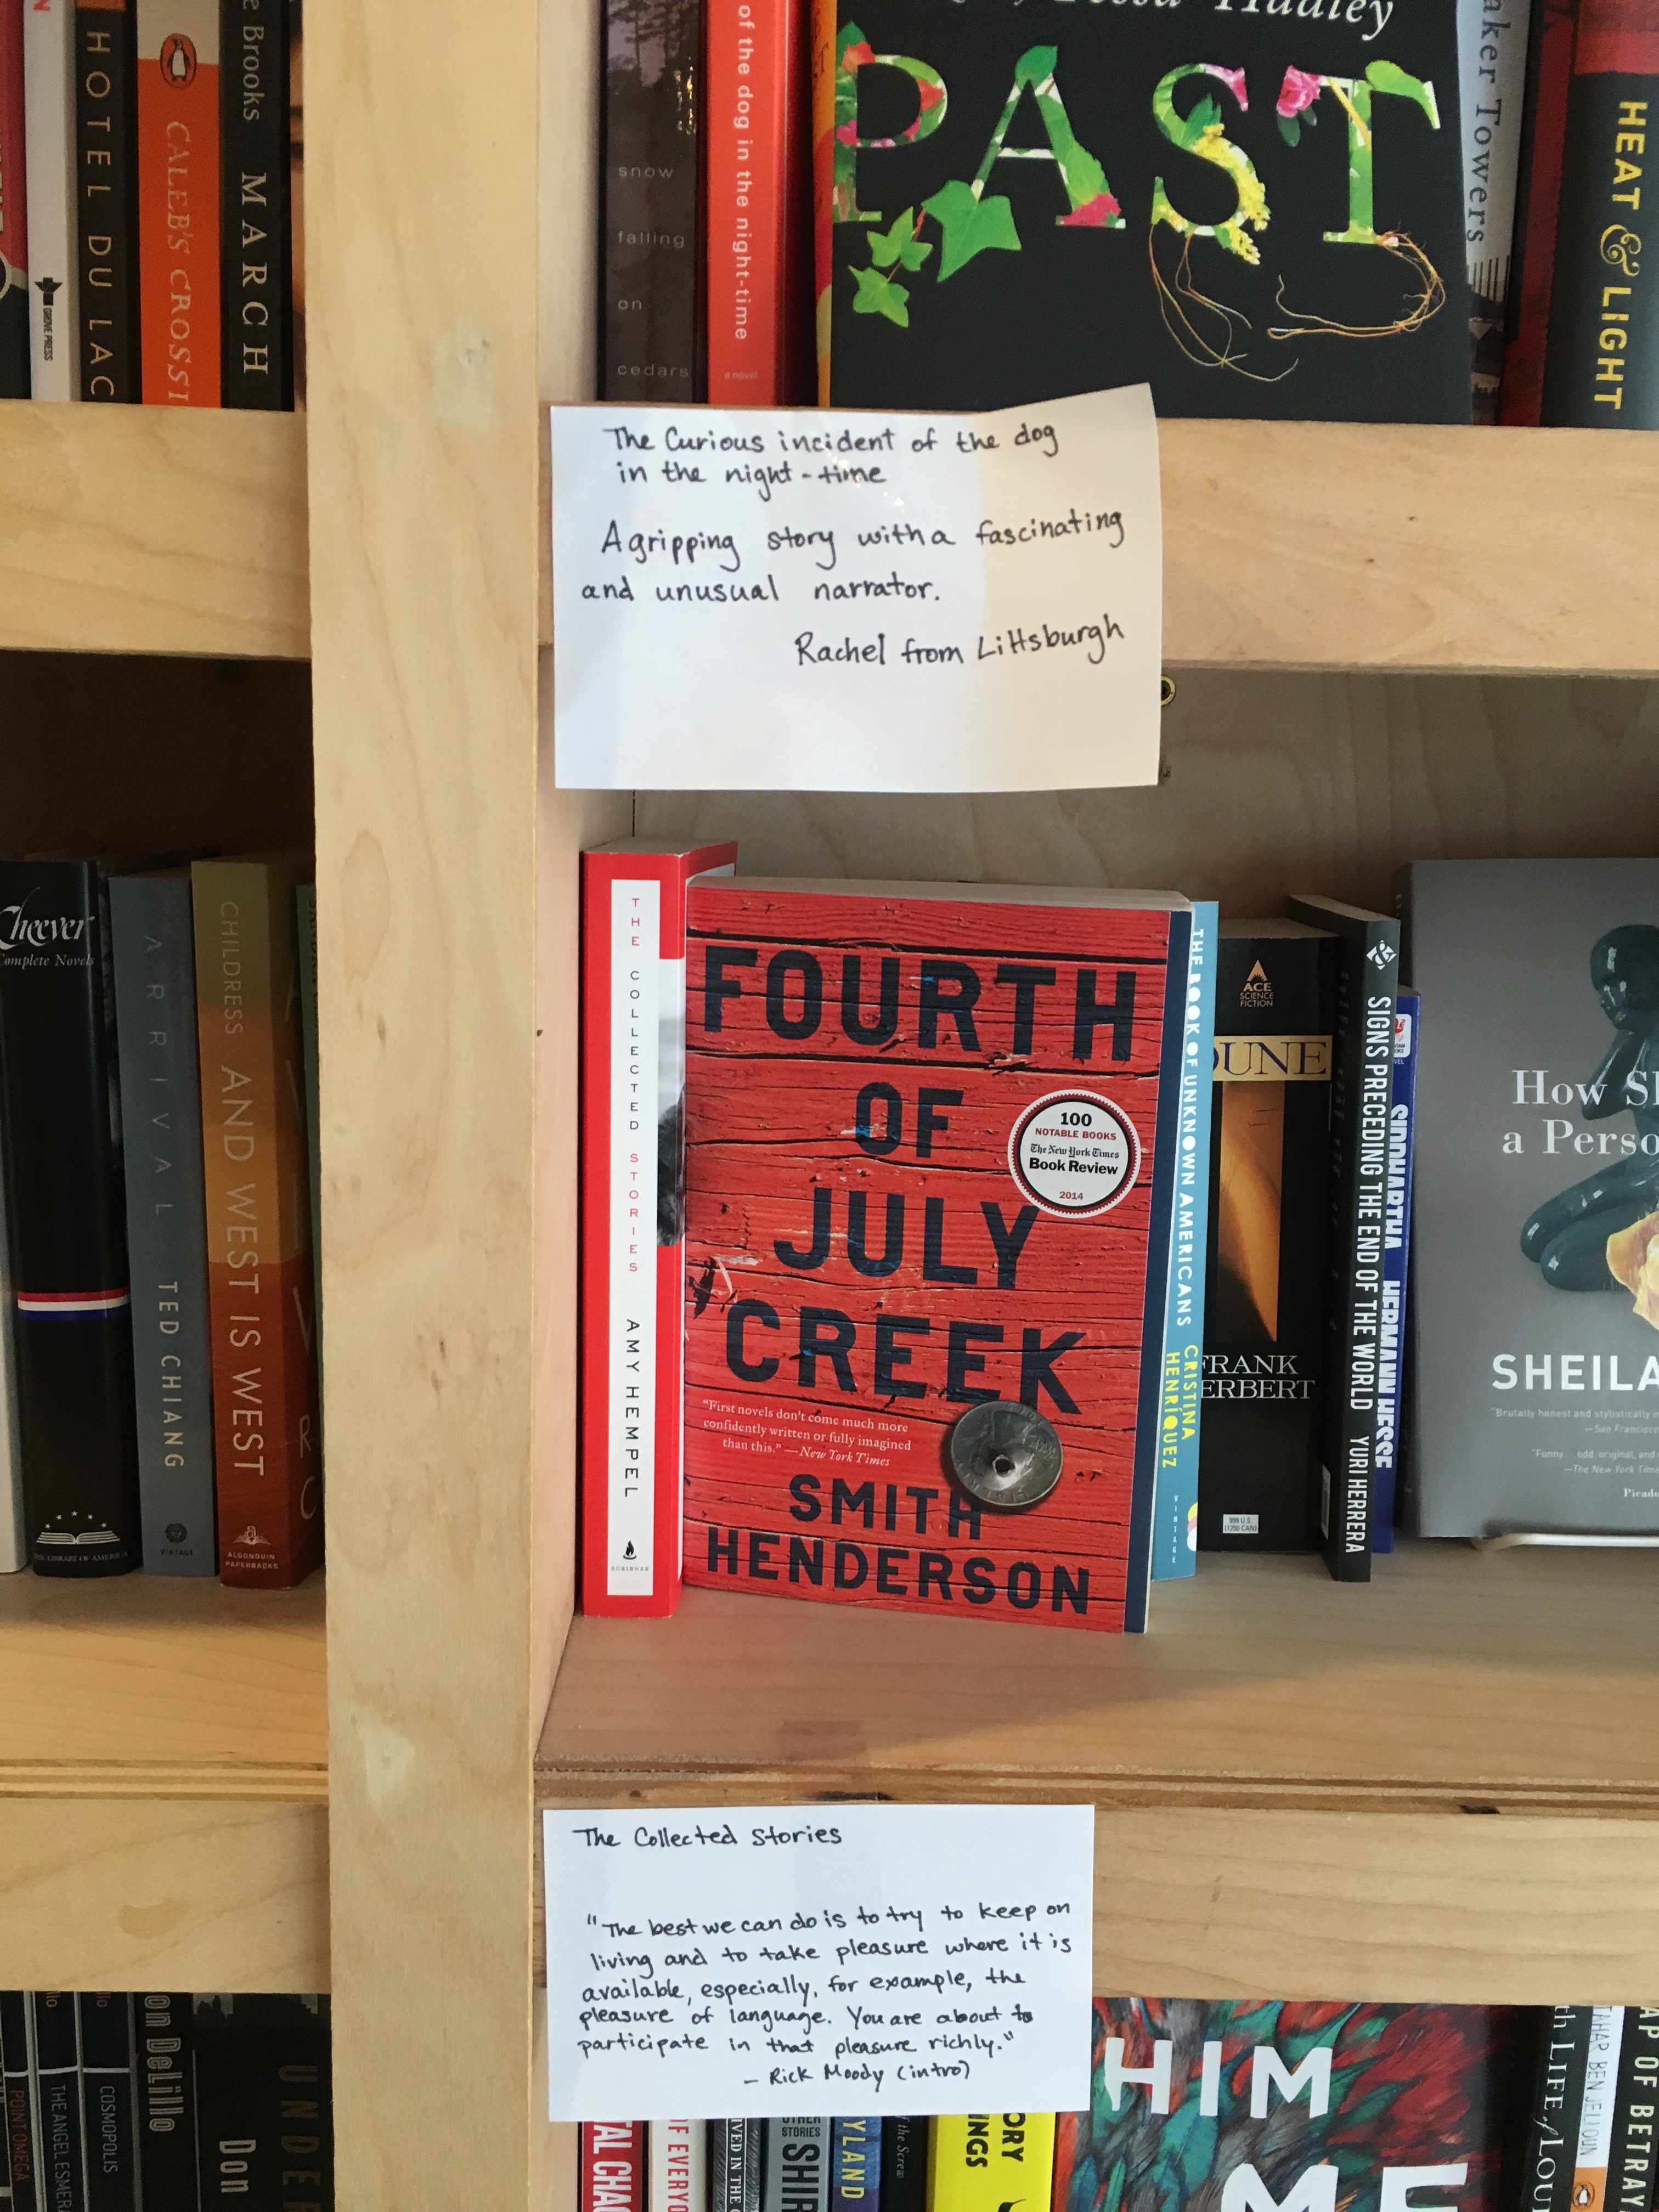 HOTEL DU LAC
GROVE PRESS
CALEB'S CROSSI
Brooks MARCH
snow
falling
on
cedars
of the dog in the night-time
a novel
Tessa Hadley
PAST
aker Towers
HEAT & LIGHT
The Curious incident of the dog
in the night-time
A gripping story with a fascinating
and unusual narrator.
Rachel from Littsburgh
Cheever
Complete Novels
THE LIBRARY OF AMERICA
ARRIVAL TED CHIANG
VINTAGE
CHILDRESS AND WEST IS WEST
ALGONQUIN
PAPERBACKS
THE COLLECTED STORIES AMY HEMPEL
SCRIBNER
FOURTH
OF
JULY
CREEK
100
NOTABLE BOOKS
The New York Times
Book Review
2014
"First novels don't come much more
confidently written or fully imagined
than this." —New York Times
SMITH
HENDERSON
THE BOOK OF UNKNOWN AMERICANS CRISTINA
HENRÍQUEZ
VINTAGE
ACE
SCIENCE
FICTION
DUNE
FRANK
HERBERT
SIGNS PRECEDING THE END OF THE WORLD YURI HERRERA
SIDDHARTHA HERMANN HESSE
How Sh
a Perso
SHEILA
"Brutally honest and stylistically
—San Francisco
"Funny odd, original, and
—The New York Time
Picado
The Collected Stories
"The best we can do is to try to keep on
living and to take pleasure where it is
available, especially, for example, the
pleasure of language. You are about to
participate in that pleasure richly."
— Rick Moody (intro)
POINT OMEGA
THE ANGEL ESMERA
COSMOPOLIS
on DeLillo
Don
UNDE
TAL CHAO
OF EVERYO
IVED IN THE C
OTHER
STORIES
SHIR
YLAND
of the Screw
ORY
NGS
HIM
ME
th LIFE of LOU
TAHAR BEN JELLOUN
AP OF BETRAY